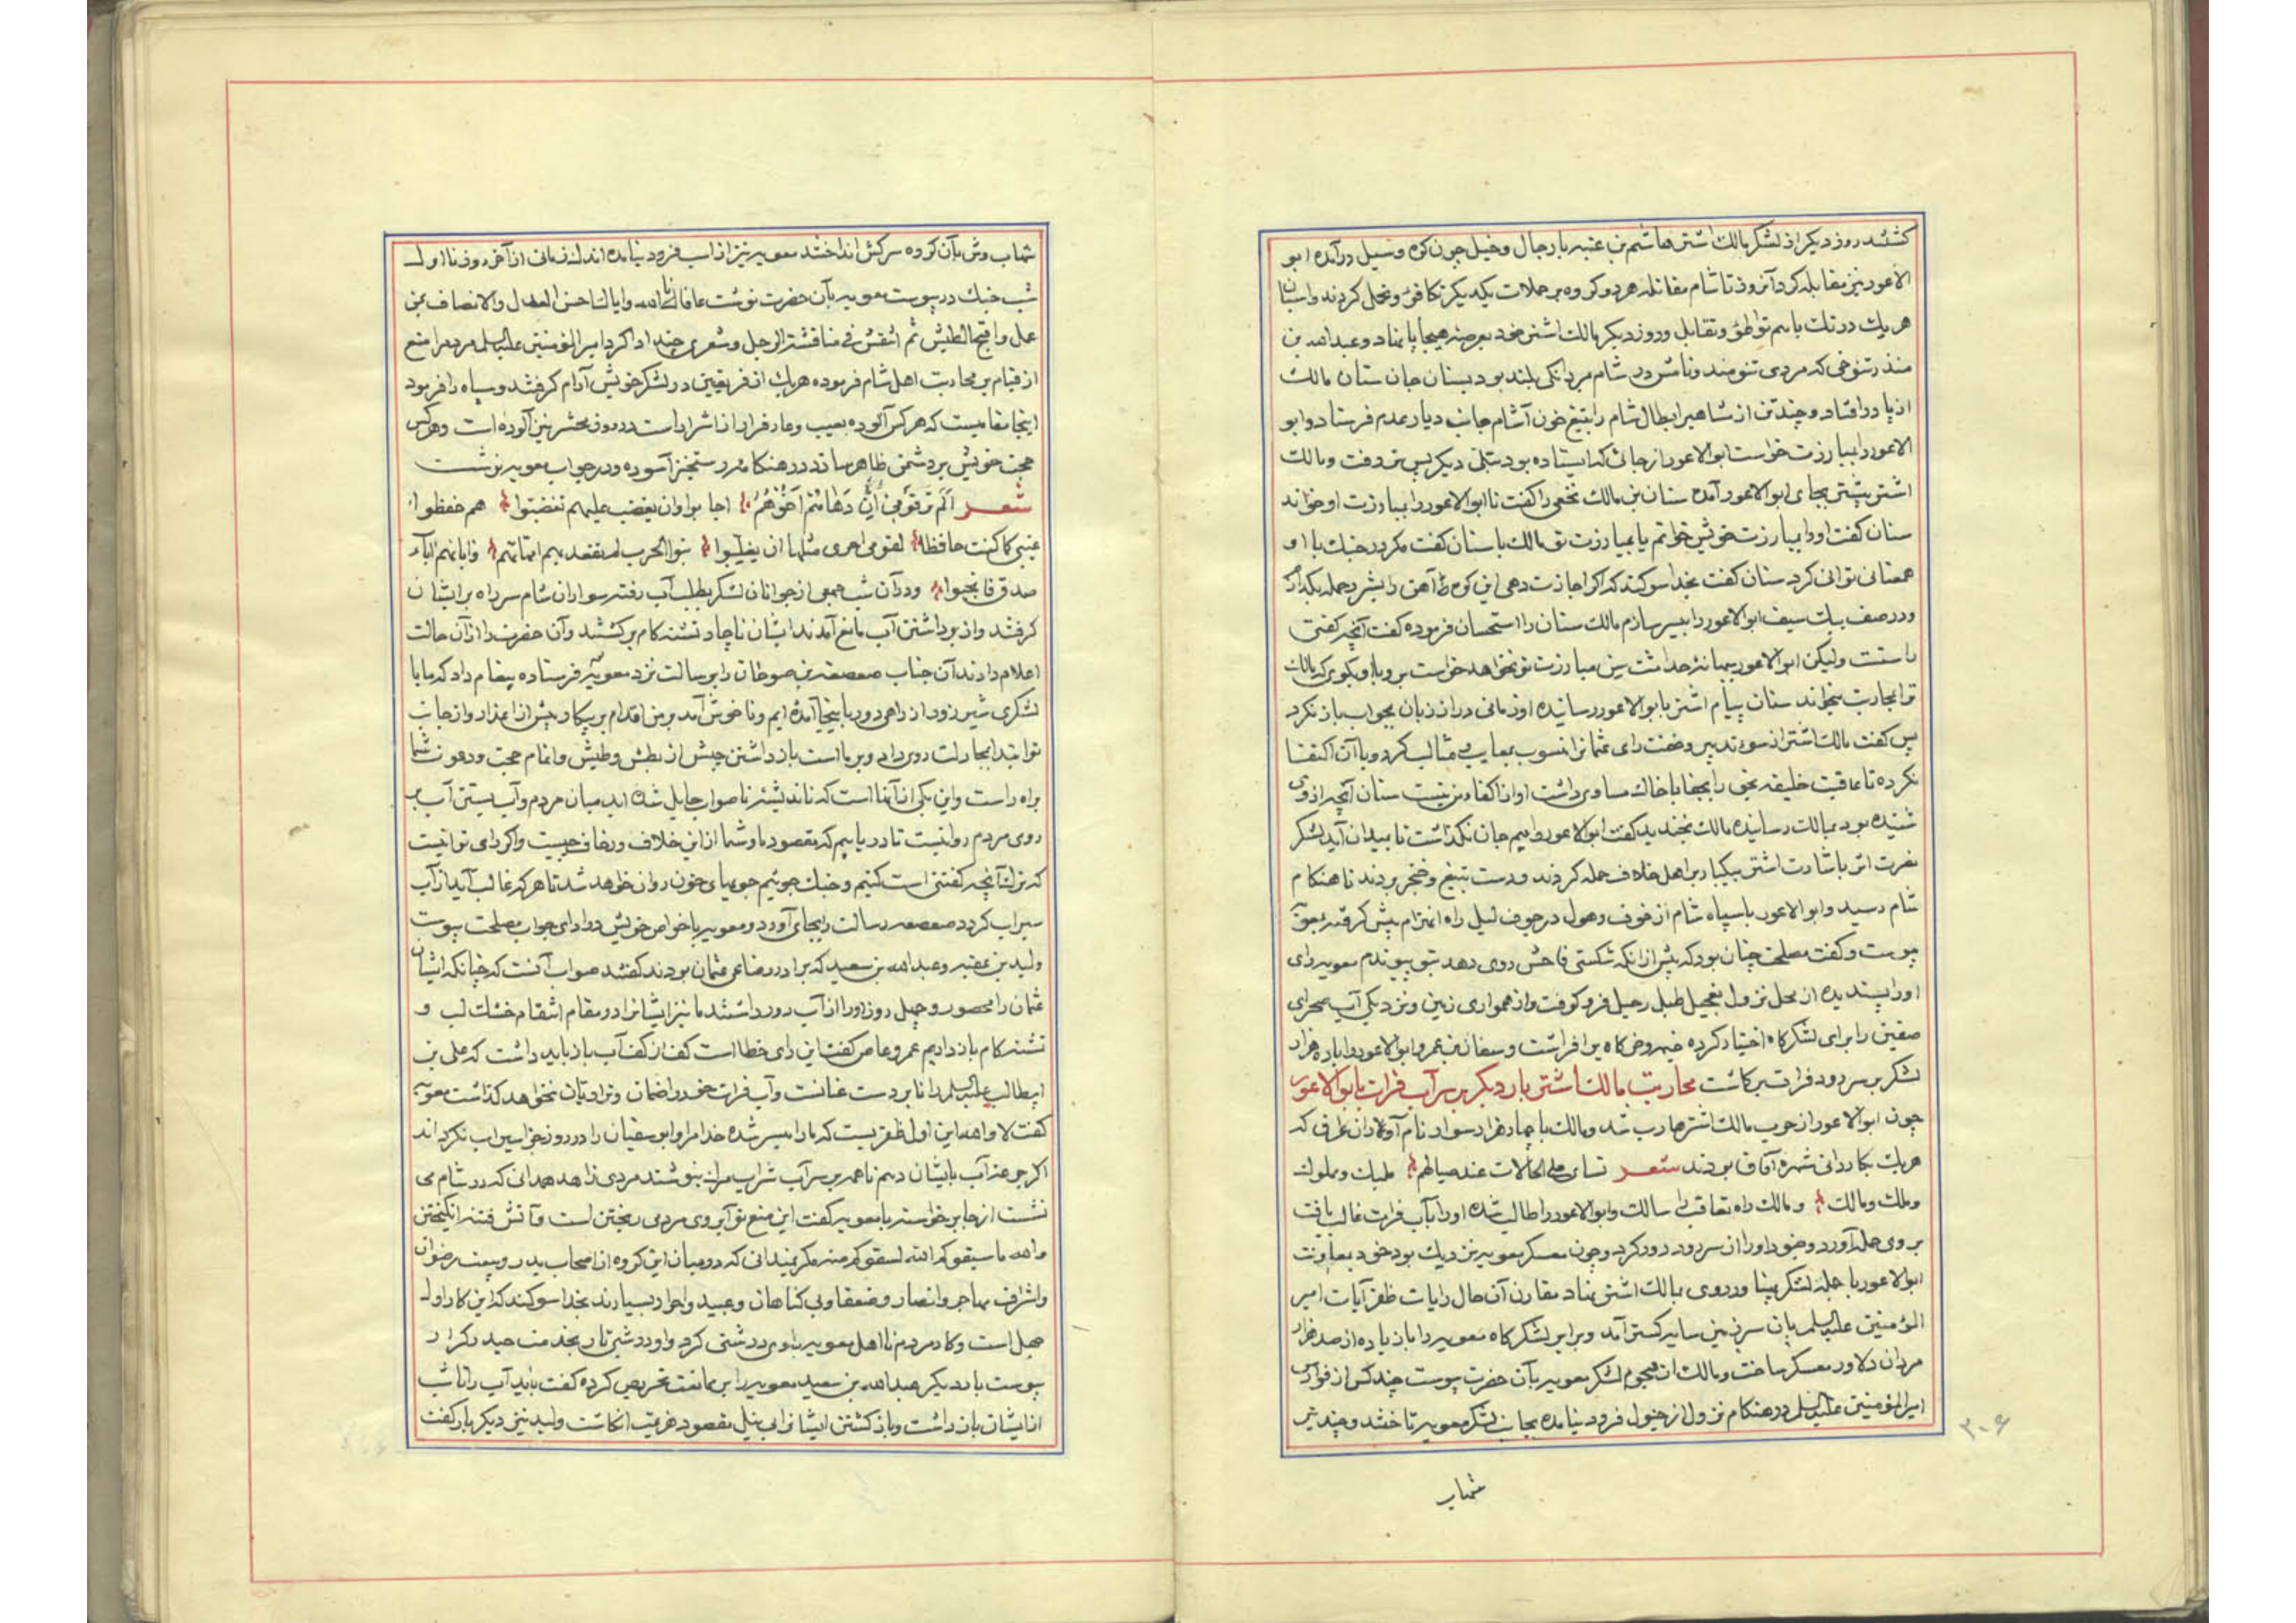 کشتند روز دیکر از لشکر مالک اشتر هاشم بن عتبه با رجال و خیل چون کوه و سیل درآمده ابو
الاعور نیز مقابله کرد آنروز تا شام مقاتله هر دو کروه بر حملات یکدیکر تکافؤ و تحمل کردند و اسبان
هریک در تک باهم تواطؤ و تقابل و روز دیکر مالک اشتر خود بعرصهٔ هیجا پا نهاد و عبدالله بن
منذر تنوخی که مردی تنومند و نامش در شام بمردانکی بلند بود بسنان جان ستان مالک
از پا درافتاد و چند تن از مشاهیر ابطال شام را بتیغ خون آشام جانب دیار عدم فرستاد و ابو
الاعور را بمبارزت خواست ابو الاعور از جائی که ایستاده بود بتلی دیکر پس تر رفت و مالک
اشتر پیشتر بجای ابو الاعور آمده سنان بن مالک نخعی را کفت تا ابو الاعور را بمبارزت او خواند
سنان کفت او را بمبارزت خویش خوانم یا بمبارزت تو مالک با سنان کفت مکر در جنک با او
همعنانی توانی کرد سنان کفت بخدا سوکند که اکر اجازت دهی این کوه آهن را بشرر حمله بکدازم
و در صف بیک سیف ابو الاعور را بیسر سازم مالک سنان را استحسان فرموده کفت آنچه کفتی
راستست ولیکن ابو الاعور ببهانهٔ حداثت سن مبارزت تو نخواهد خواست برو با او بکوی که مالک
ترا بمحاربت میخواند سنان پیام اشتر بابو الاعور رسانیده او زمانی دراز زبان بجواب باز نکرد
پس کفت مالک اشتر از سوء تدبیر و خفت رای عثمانرا منسوب بمعایب و مثالب کرد و با آن اکتفا
نکرده تا عاقبت خلیفه بحق را بجفا با خاک مساوی داشت او از اکفاء من نیست سنان آنچه از وی
شنیده بود بمالک رسانیده مالک بخندید کفت ابو الاعور را بیم جان نکذاشت تا بمیدان آید لشکر
نصرت اثر باشارت اشتر بیکبار بر اهل خلاف حمله کردند و دست بتیغ و خنجر بردند تا هنکام
شام رسید و ابو الاعور با سپاه شام از خوف و هول در جوف لیل راه انهزام پیش کرفته بمعویه
پیوست و کفت مصلحت چنان بود که پیش از آنکه شکستی فاحش روی دهد بتو پیوندم معویه رای
او را پسندیده از محل نزول بتعجیل طبل رحیل فرو کوفت و از همواری زمین و نزدیکی آب صحرای
صفین را برای لشکرکاه اختیار کرده خیمه و خرکاه برافراشت و سفان بن عمرو ابو الاعور را با ده هزار
لشکر بر سر رود فرات برکماشت محاربت مالک اشتر بار دیکر بر سر آب فرات با ابو الاعور
چون ابو الاعور از حرب مالک اشتر هارب شد و مالک با چهار هزار سوار نام آور از ان طرف که
هریک بکاردانی شهره آفاق بودند شعر تساوی علی الحالات عند صیالهم ملیک و مملوک
و ملک و مالک و مالک راه تعاقب را سالک و ابو الاعور را طالب شده او را بآب فرات غالب یافت
بروی حمله آورد و خود او را از سر رود دور کرد و چون معسکر معویه نزدیک بود خود بمعاونت
ابو الاعور با جمله لشکر بهنا ور روی بمالک اشتر نهاد مقارن آن حال رایات ظفر آیات امیر
المؤمنین علیه السلم بان سرزمین سایه کستر آمد و برابر لشکرکاه معویه را با زیاده از صد هزار
مردان دلاور معسکر ساخت و مالک از هجوم لشکر معویه بآن حضرت پیوست چند کس از فوارس
امیر المؤمنین علیه السلم در هنکام نزول از خیول فرود نیامده بجانب لشکر معویه تاختند و چند تیر
شهاب
۳۰۶
شهاب وش بآن کروه سرکش انداختند معویه نیز از اسب فرود نیامده اندک زمانی از آخر روز تا اول
شب جنک در پیوست معویه بآن حضرت نوشت عافانا الله و ایاک ما احسن العدل و الانصاف من
عمل و اقبح الطیش ثم النفش فی مناقشة الرجل و شعری چند ادا کرد امیر المؤمنین علیه السلم مردم را منع
از قیام بر محاربت اهل شام فرموده هریک از فریقین در لشکر خویش آرام کرفتند و سپاه را فرمود
اینجا مقامیست که هرکس آلوده بعیب و عار فرار از اشرار است در روز محشر نیز آلوده است و هرکس
حجت خویش بر دشمن ظاهر سازد در هنکامهٔ رستخیز آسوده و در جواب معویه نوشت
شعر الم تر قومی ان دعاهم اخوهم اجابوا وان یغضب علی القوم تغضبوا هم حفظوا
غیبی کما کنت حافظا لقومی اخری مثلها ان یغلبوا بنو الحرب لم یقعد بهم امهاتهم و اباؤهم اباء
صدق فانجبوا و در آن شب جمعی از جوانان لشکر بطلب آب رفته سواران شام سر راه بر ایشان
کرفتند و از برداشتن آب مانع آمدند ایشان ناچار تشنه کام برکشتند و آن حضرت را از آن حالت
اعلام دادند آن جناب صعصعة بن صوحان را برسالت نزد معویه فرستاده پیغام داد که ما با
لشکری شیر زور از راهی دور باینجا آمده ایم و ناخوش آمد بر من اقدام بر پیکار پیش از اعذار و از جانب
تو ابتدا بمجادلت روی داد و بر ما است باز داشتن جیش از بطش و طیش و اتمام حجت و دعوت شما
براه راست و این یکی از آنها است که نااندیشیده ناصواب حایل شده اید میان مردم و آب بستن آب بر
روی مردم روا نیست تا دریابیم که مقصود ما و شما از این خلاف و رضاف چیست و اکر رای تو اینست
که ترک آنچه کفتنی است کنیم و جنک جوئیم جویهای خون روان خواهد شد تا هر که غالب آید از آب
سیراب کردد صعصعه رسالت را بجای آورد و معویه با خواص خویش در ادای جواب بمصلحت پیوست
ولید بن عقبه و عبدالله بن سعید که برادر رضاعی عثمان بودند کفتند صواب آنست که چنانکه ایشان
عثمان را محصور و چهل روز او را از آب دور داشتند ما نیز ایشانرا در مقام انتقام خشک لب و
تشنه کام باز داریم عمرو عاص کفت این رای خطا است کف از کف آب باز باید داشت که علی بن
ابیطالب علیه السلم را تا بر دست عنانست و آب فرات خود را ضمان و ترا دیان نخواهد کذاشت معویه
کفت لا والله این اول ظفریست که ما را میسر شده خدا مرا و ابو سفیان را در روز جزا سیراب نکرداند
اکر جرعه آب بایشان دهم تا همه بر سر آب شراب مرک بنوشند مردی زاهد همدانی که در شام می
نشست از جا برخواسته با معویه کفت این منع تو آبروی مردمی ریختن است و آتش فتنه انکیختن
والله ما سبقوکم الله لسقوکم منه مکر نمیدانی که در میان این کروه از اصحاب بدر و بیعت رضوان
و اشراف مهاجر و انصار و ضعفا و بی کناهان و عبید و احرار بسیارند بخدا سوکند که این کار اول
جهل است و کار مردم نااهل معویه با وی درشتی کرد و او در شبی تار بخدمت حیدر کرار
پیوست بار دیکر عبدالله بن سعید معویه را بر ممانعت تحریص کرده کفت باید آب را تا شب
از ایشان باز داشت و باز کشتن ایشانرا بی نیل مقصود هزیمت انکاشت ولید نیز دیکر بار کفت